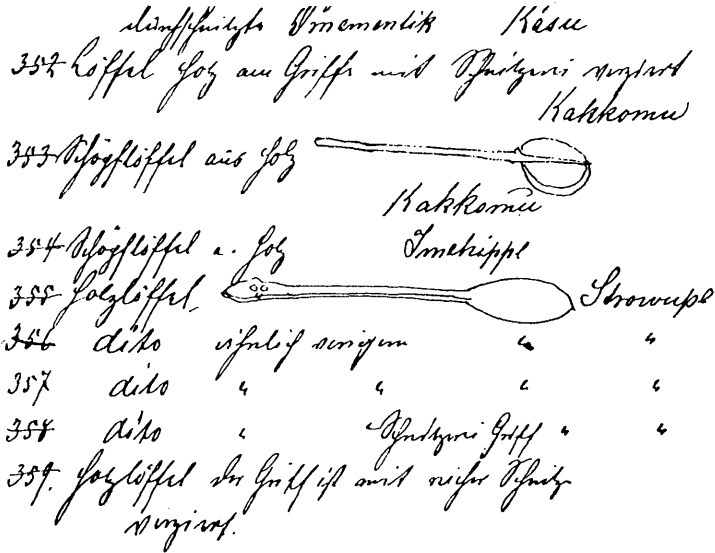 durchschnitzte Ornementik Kásu
352 Löffel Holz am Griffe mit Schnitzerei verziert
Kakkomu
353 Schöpflöffel aus Holz
Kakkomu
354 Schöpflöffel a. Holz Imehippl
355 Holzlöffel, Strowupl
356 dito ähnlich vorigem " "
357 dito " " " "
358 dito " Schnitzerei Griff " "
359. Holzlöffel der Griff ist mit reicher Schnitz-
verziert.